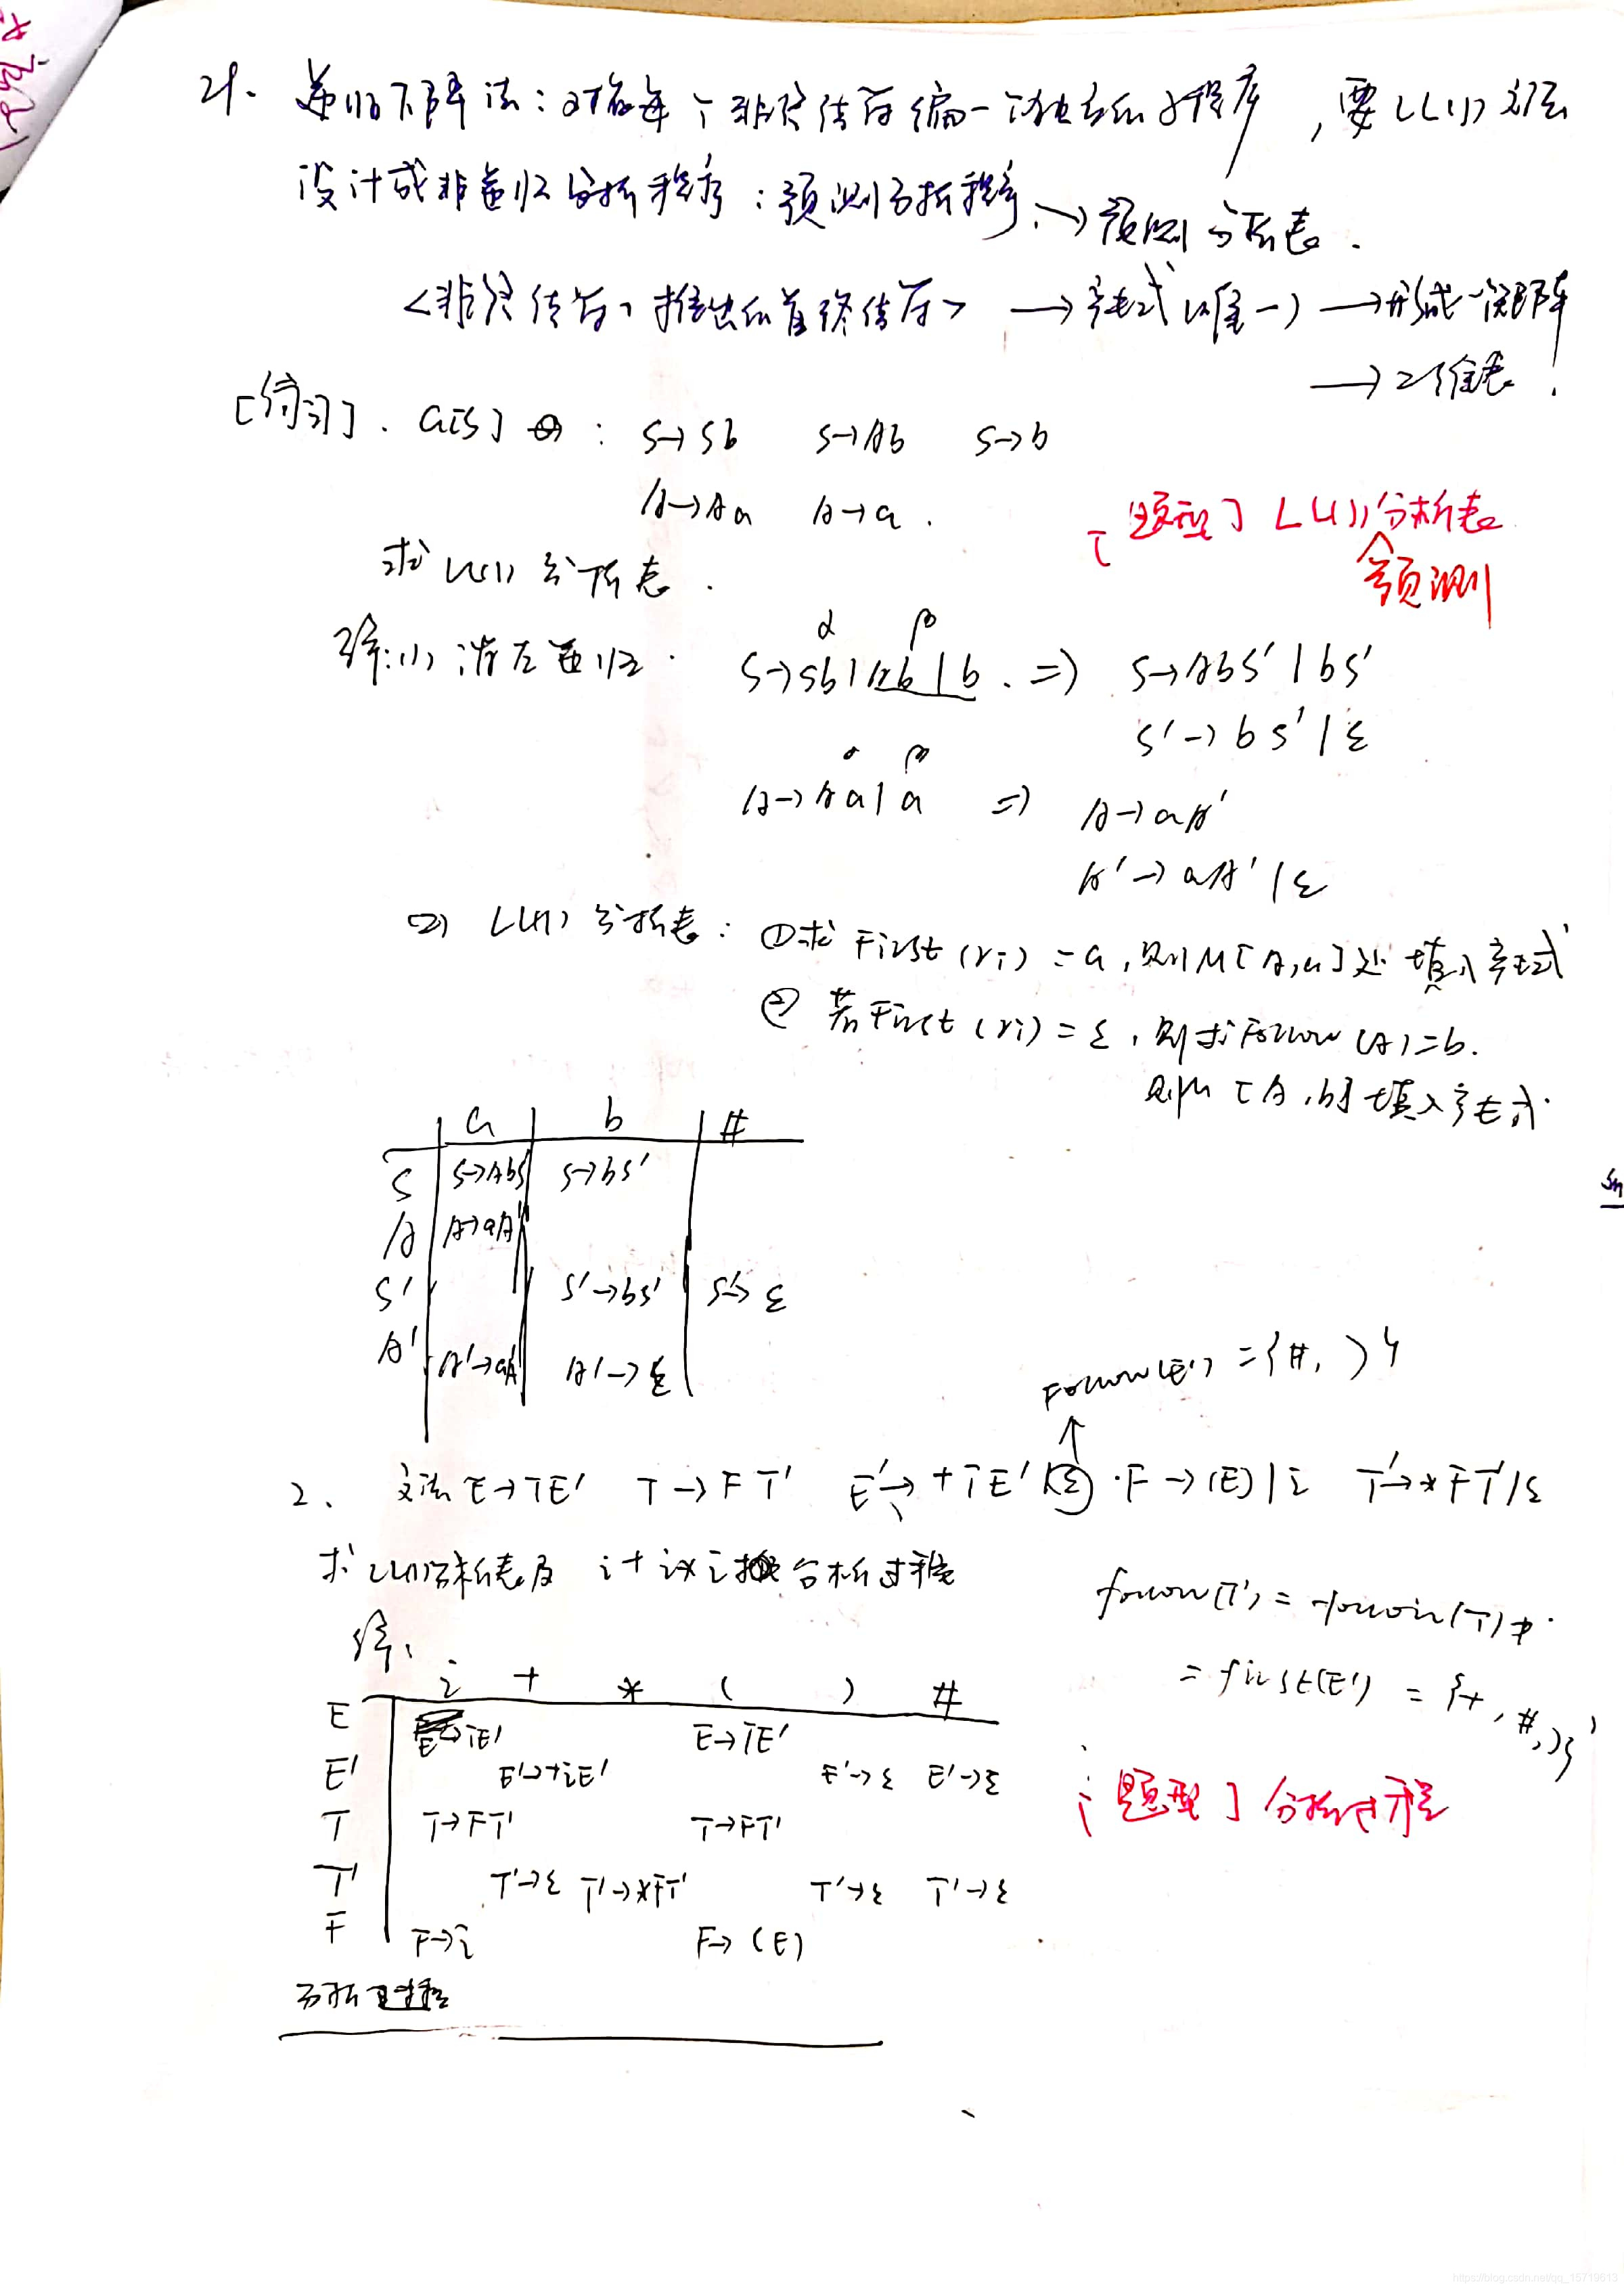 21. 递归下降法：对每个非终结符编一个独立的子程序，要LL(1)文法
设计成非递归分析程序：预测分析程序. → 预测分析表.
<非终结符，推出的首终结符> → 产生式(唯一) → 形成一个矩阵
→ 2维表！
[练习]. G[S]: S→Sb S→Ab S→b
A→Aa A→a.
[题型] LL(1)分析表
预测
求LL(1)分析表.
解:(1) 消左递归. S→Sb|Ab|b. ⇒ S→AbS'|bS'
α β
S'→bS'|ε
α β
A→Aa|a ⇒ A→aA'
A'→aA'|ε
(2) LL(1)分析表: ①求First(ri)=a,则M[A,a]处填入产生式
② 若First(ri)=ε,则求Follow(A)=b.
则M[A,b]填入产生式.
a b #
S S→AbS' S→bS'
A A→aA'
S' S'→bS' S'→ε
A' A'→aA' A'→ε
Follow(E')={#, )}
2、文法E→TE' T→FT' E'→+TE'|ε. F→(E)|i T'→*FT'|ε
求LL(1)分析表及 i+i*i 分析过程
follow(T')=follow(T)
=first(E')={+,#,)}
解、
i + * ( ) #
E E→TE' E→TE'
E' E'→+iE' E'→ε E'→ε
T T→FT' T→FT'
T' T'→ε T'→*FT' T'→ε T'→ε
F F→i F→(E)
[题型] 分析过程
分析过程
https://blog.csdn.net/qq_15719613